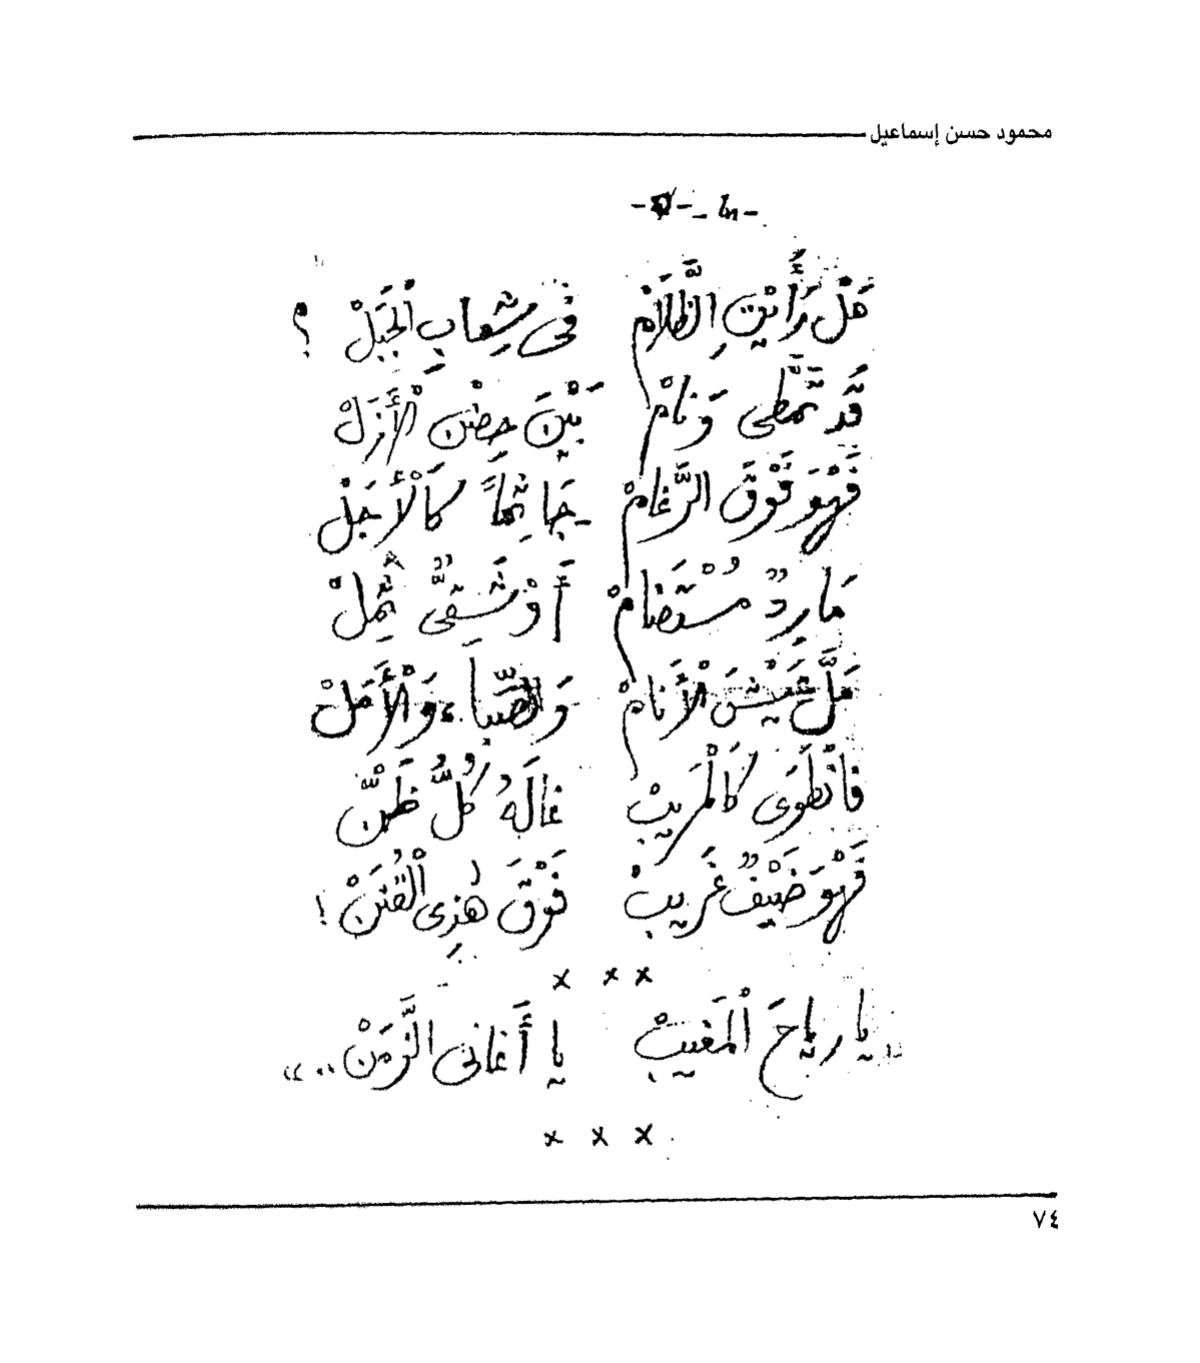 محمود حسن إسماعيل
هَلْ رَأَيْتِ الظَّلَامْ فى شِعابِ الْجَبَلْ ؟
قَدْ تَمَّطى وَنامْ بَيْنَ حِضْنِ الْأَزَلْ
فَهْوَ فَوْقَ الرَّغامْ جَاثِماً كَالْأَجَلْ
مَارِدٌ مُسْتَضَامْ أَوْ شَقِىٌّ ثَمِلْ
مَلَّ عَيْشَ الْأَنامْ وَالصِّبا، وَالْأَمَلْ
فانْطَوَى كَالْمَريبْ غالَهُ كُلُّ ظَنّْ
فَهْوَ ضَيْفٌ غَريبْ فَوْقَ هٰذِى الْقُنَنْ !
× × ×
يا رياحَ الْمَغيبْ يا أَغانى الزَّمَنْ .. »
× × ×
٧٤